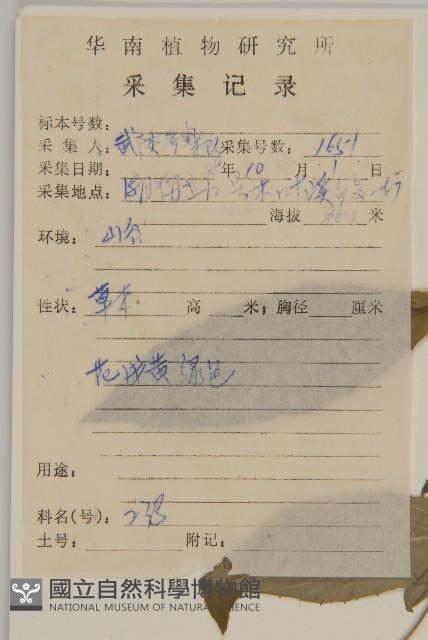 华南植物研究所
采集记录
标本号数:
采集人: 武陵考察队 采集号数: 1651
采集日期: 88年10月1日
采集地点:
海拔 860 米
环境: 山谷
性状: 草本 高 米; 胸径 厘米
花淡黄绿色
用途:
科名(号): 233
土号: 附记:
國立自然科學博物館
NATIONAL MUSEUM OF NATURAL SCIENCE